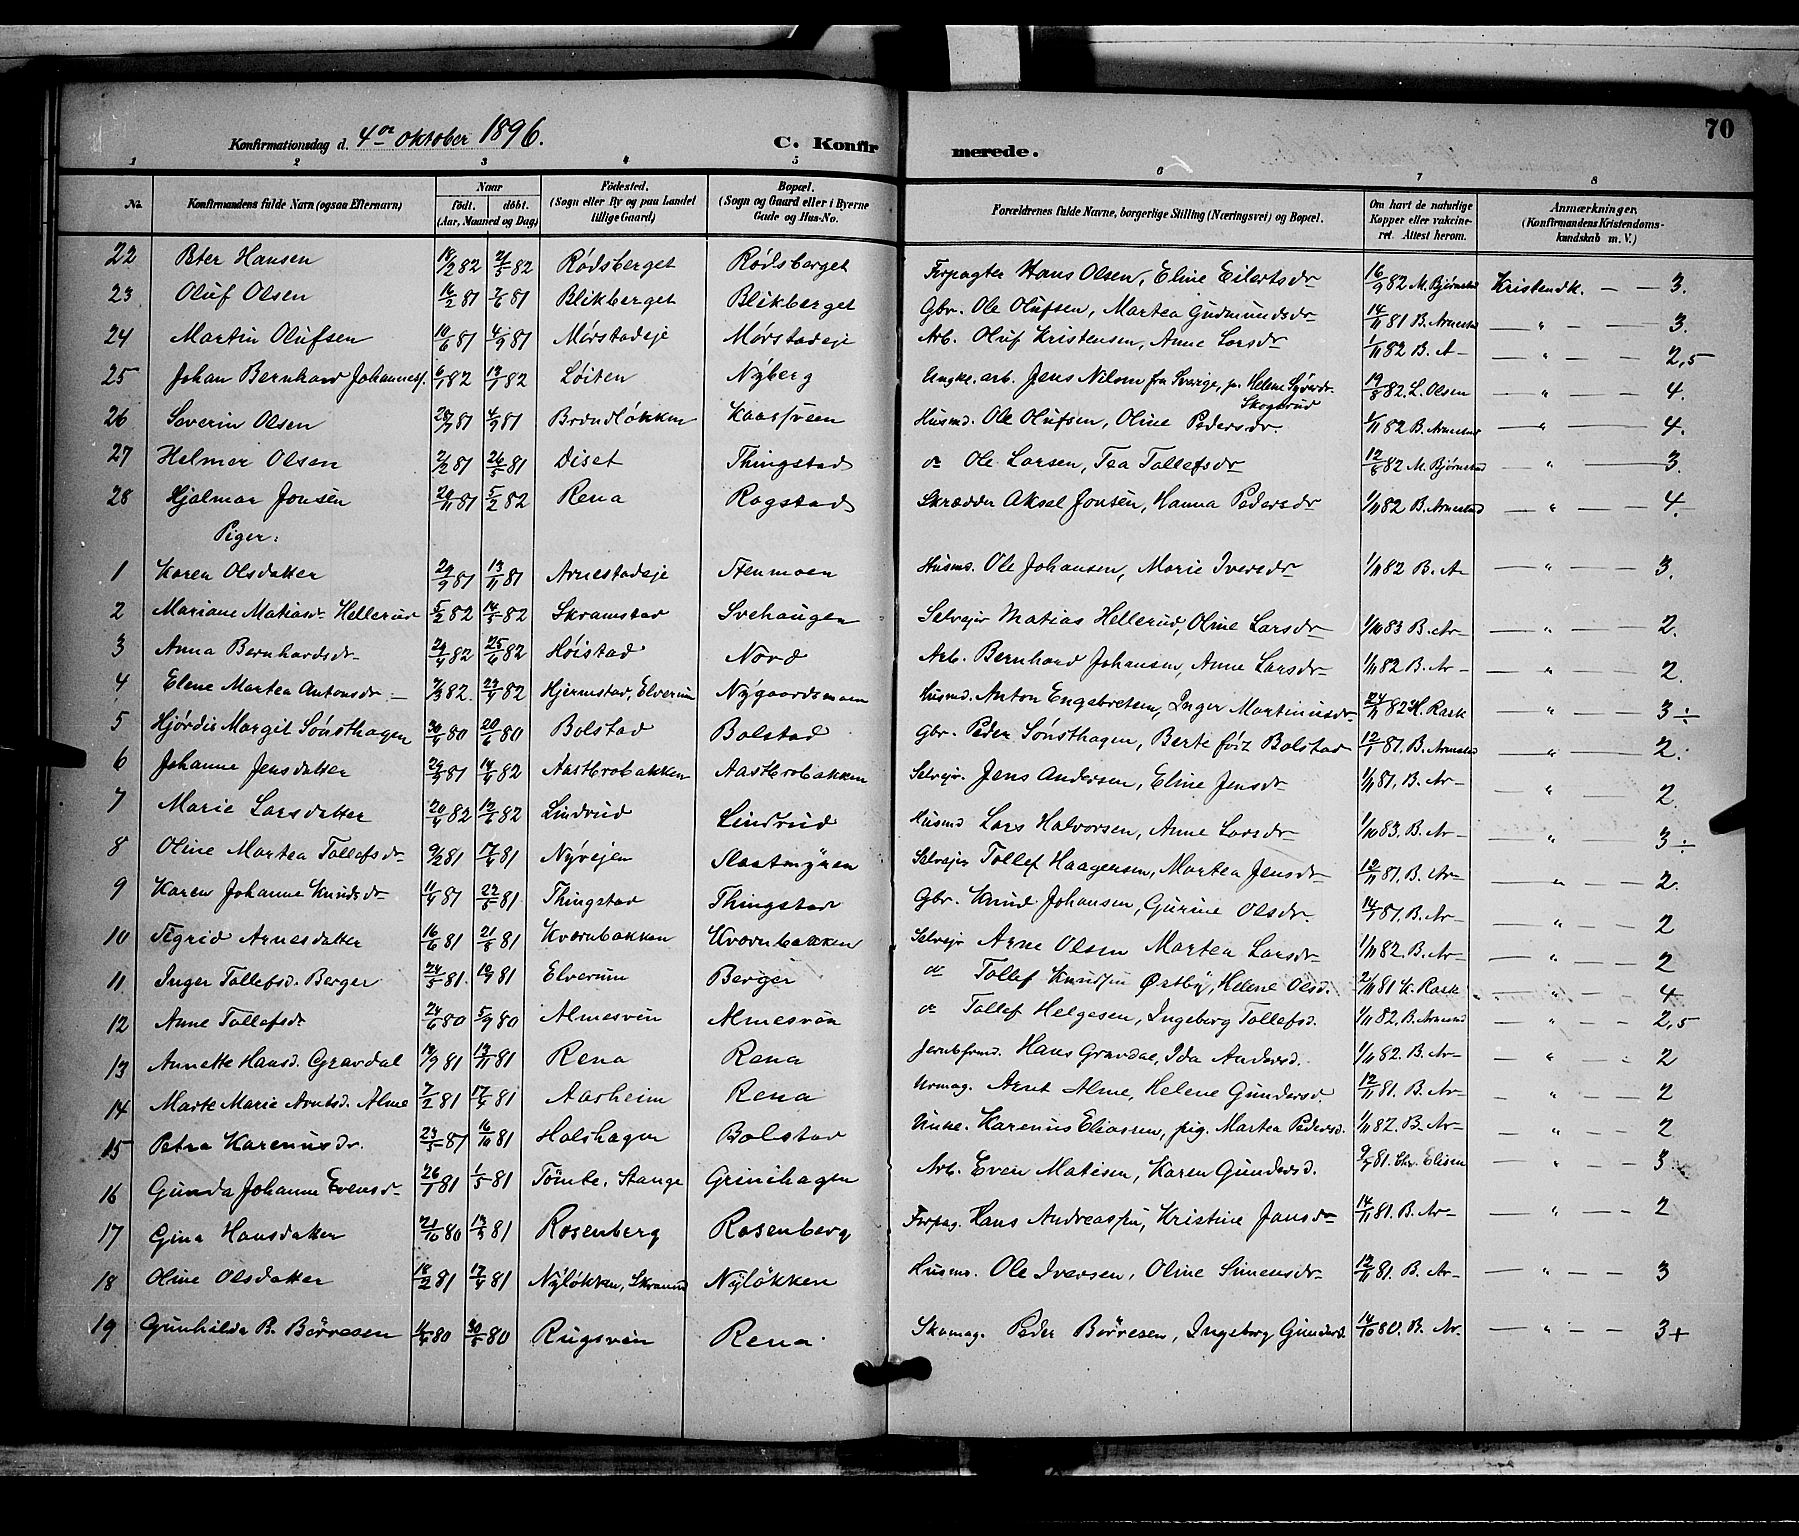 Konfirmationsdag d. 4de oktober 1896.
C. Konfirmerede.
70
1 2 3 4 5 6 7 8
No. | Konfirmandens fulde Navn (ogsaa Efternavn) | Naar født. døbt. (Aar, Maaned og Dag) | Fødested. (Sogn eller By og paa Landet tillige Gaard) | Bopæl. (Sogn og Gaard eller i Byerne Gade og Hus-No. | Forældrenes fulde Navne, borgerlige Stilling (Næringsvei) og Bopæl. | Om havt de naturlige Kopper eller vakcineret. Attest herom. | Anmærkninger, (Konfirmandens Kristendomskundskab m. V.)
22 Peter Hansen 82 21/5 82 Rødsberget Rødsberget Forpagter Hans Olsen, Eline Eilertsdr 16/9 82 M. Bjørnstad Kristendk. — — 3.
23 Oluf Olsen 81 7/6 81 Blikberget Blikberget Gbr. Ole Olufsen, Martea Gudmundsdr 14/11 81 B. Arnestad — " — — 3.
24 Martin Olufsen 10/6 81 4/9 81 Mørstadeje Mørstadeje Arb. Oluf Kristensen, Anne Larsdr 1/11 82 B. A— — " — — 2,5
25 Johan Bernhard Johannesf. 6/1 82 82 Løiten Nyberg Ungk. arb. Jens Nilsen fra Sverige, p. Helene Syversdr. Skogsrud 19/8 82. L. Olsen — " — — 4.
26 Severin Olsen 81 4/9 81 Brændløkken Kaasveen Husmd. Ole Olufsen, Oline Pedersdr. 82 B. Arnestad — " — — 4.
27 Helmer Olsen 2/2 81 26/5 81 Diset Thingstad do Ole Larsen, Tea Tollefsdr 12/8 82 M. Bjørnstad — " — — 3.
28 Hjalmar Jonsen 29/11 81 5/2 82 Rena Rogstad Skrædder Aksel Jonsen, Hanna Pedersdr 1/11 82 B. Arnestad — " — — 4.
Piger:
1 Karen Olsdatter 29/9 81 13/11 81 Arnestadeje Stenmoen Husmd. Ole Johansen, Marie Iversdr 1/11 82 B. A— — " — — 3.
2 Mariane Matiasdr Hellerud 5/2 82 14/5 82 Skramstad Svehaugen Selvejer Matias Hellerud, Oline Larsdr 1/10 83 B. Ar— — " — — 2.
3 Anna Bernhardsdr 29/4 82 25/6 82 Høistad Nord Arb. Bernhard Johansen, Anne Larsdr 1/11 82 B. Ar— — " — — 2.
4 Elene Martea Antonsdr 7/3 82. 82 Hjermstad, Elverum Nygaardsmoen Husmd. Anton Engebretsen, Inger Martinusdr 24/11 82 K. Rask — " — — 3÷
5 Hjørdis Margit Sønsthagen 30/4 80 20/6 80 Bolstad Bolstad Gbr. Peder Sønsthagen, Berte føiz Bolstad 81. B. Arnestad — " — — 2.
6 Johanne Jensdatter 81 82 Aastbrobakken Aastbrobakken Selvejer Jens Andersen, Eline Jensdr 1/11 81, B. Ar— — " — — 2.
7 Marie Larsdatter 20/4 82 82 Lindrud Lindrud Husmd Lars Halvorsen, Anne Larsdr 1/10 83. B. Ar— — " — — 3÷
8 Oline Martea Tollefsdr 9/2 81 17/4 81 Nyvejen Slaatmyren Selvejer Tollef Haagensen, Martea Jensdr 12/11 81, B. Ar— — " — — 2.
9 Karen Johanne Knudsdr 11/4 81 22/5 81 Thingstad Thingstad Gbr. Knud Johansen, Gurine Olsdr. 81. B. Ar— — " — — 2
10 Sigrid Arnesdatter 16/6 81 21/8 81 Kværnbakken Kværnbakken Selvejer Arne Olsen Martea Larsdr 1/11 82. B. Ar— — " — — 2
11 Inger Tollefsd. Berger 24/5 81. 81 Elverum Berger do Tollef Knudsen Østby, Helene Olsd. 2/11 81 K. Rask " — — 4
12 Anne Tollefsdr 29/6 80 5/9 80 Almesveen Almesveen do Tollef Helgesen, Ingeborg Tollefsd. 1/11 82, B. Arnestad — " — — 2,5
13 Annette Hansd. Gravdal 81 13/11 81 Rena Rena Hans Gravdal, Ida Andersd. 1/11 82. B. Ar— — " — — 2
14 Marte Marie Arntsd. Alme 7/2 81 17/4 81 Aasheim Rena Urmag. Arnt Alme, Helene Gundersd. 12/11 81. B. Ar— " — — 2
15 Petra Kareniusdr. 81 16/10 81 Holshagen Bolstad Karenius Eliassen, pig. Martea Pedersd. 1/11 82. B. Ar— — " — — 2
16 Gunda Johanne Evensdr 26/1 81 1/5 81 Tømte, Stange Grinihagen Arb. Even Matisen, Karen Gundersd. 81. Chr. Elisen — " — — 3
17 Gina Hansdatter 80 81 Rosenberg Rosenberg Forpag. Hans Andreassen, Kristine Jansdr 14/11 81. B. Ar— — " — — 2
18 Oline Olsdatter 18/2 81 17/4 81 Nyløkken, Skramst Nyløkken Husmd. Ole Iversen, Oline Simensdr 12/11 81. B. Ar— — " — — 3
19 Gunhilda B. Børresen 80 30/5 80 Rugsveen Rena. Skomag. Peder Børresen, Ingeborg Gundersd. 14/10 80. B. Ar. — " — — 3+